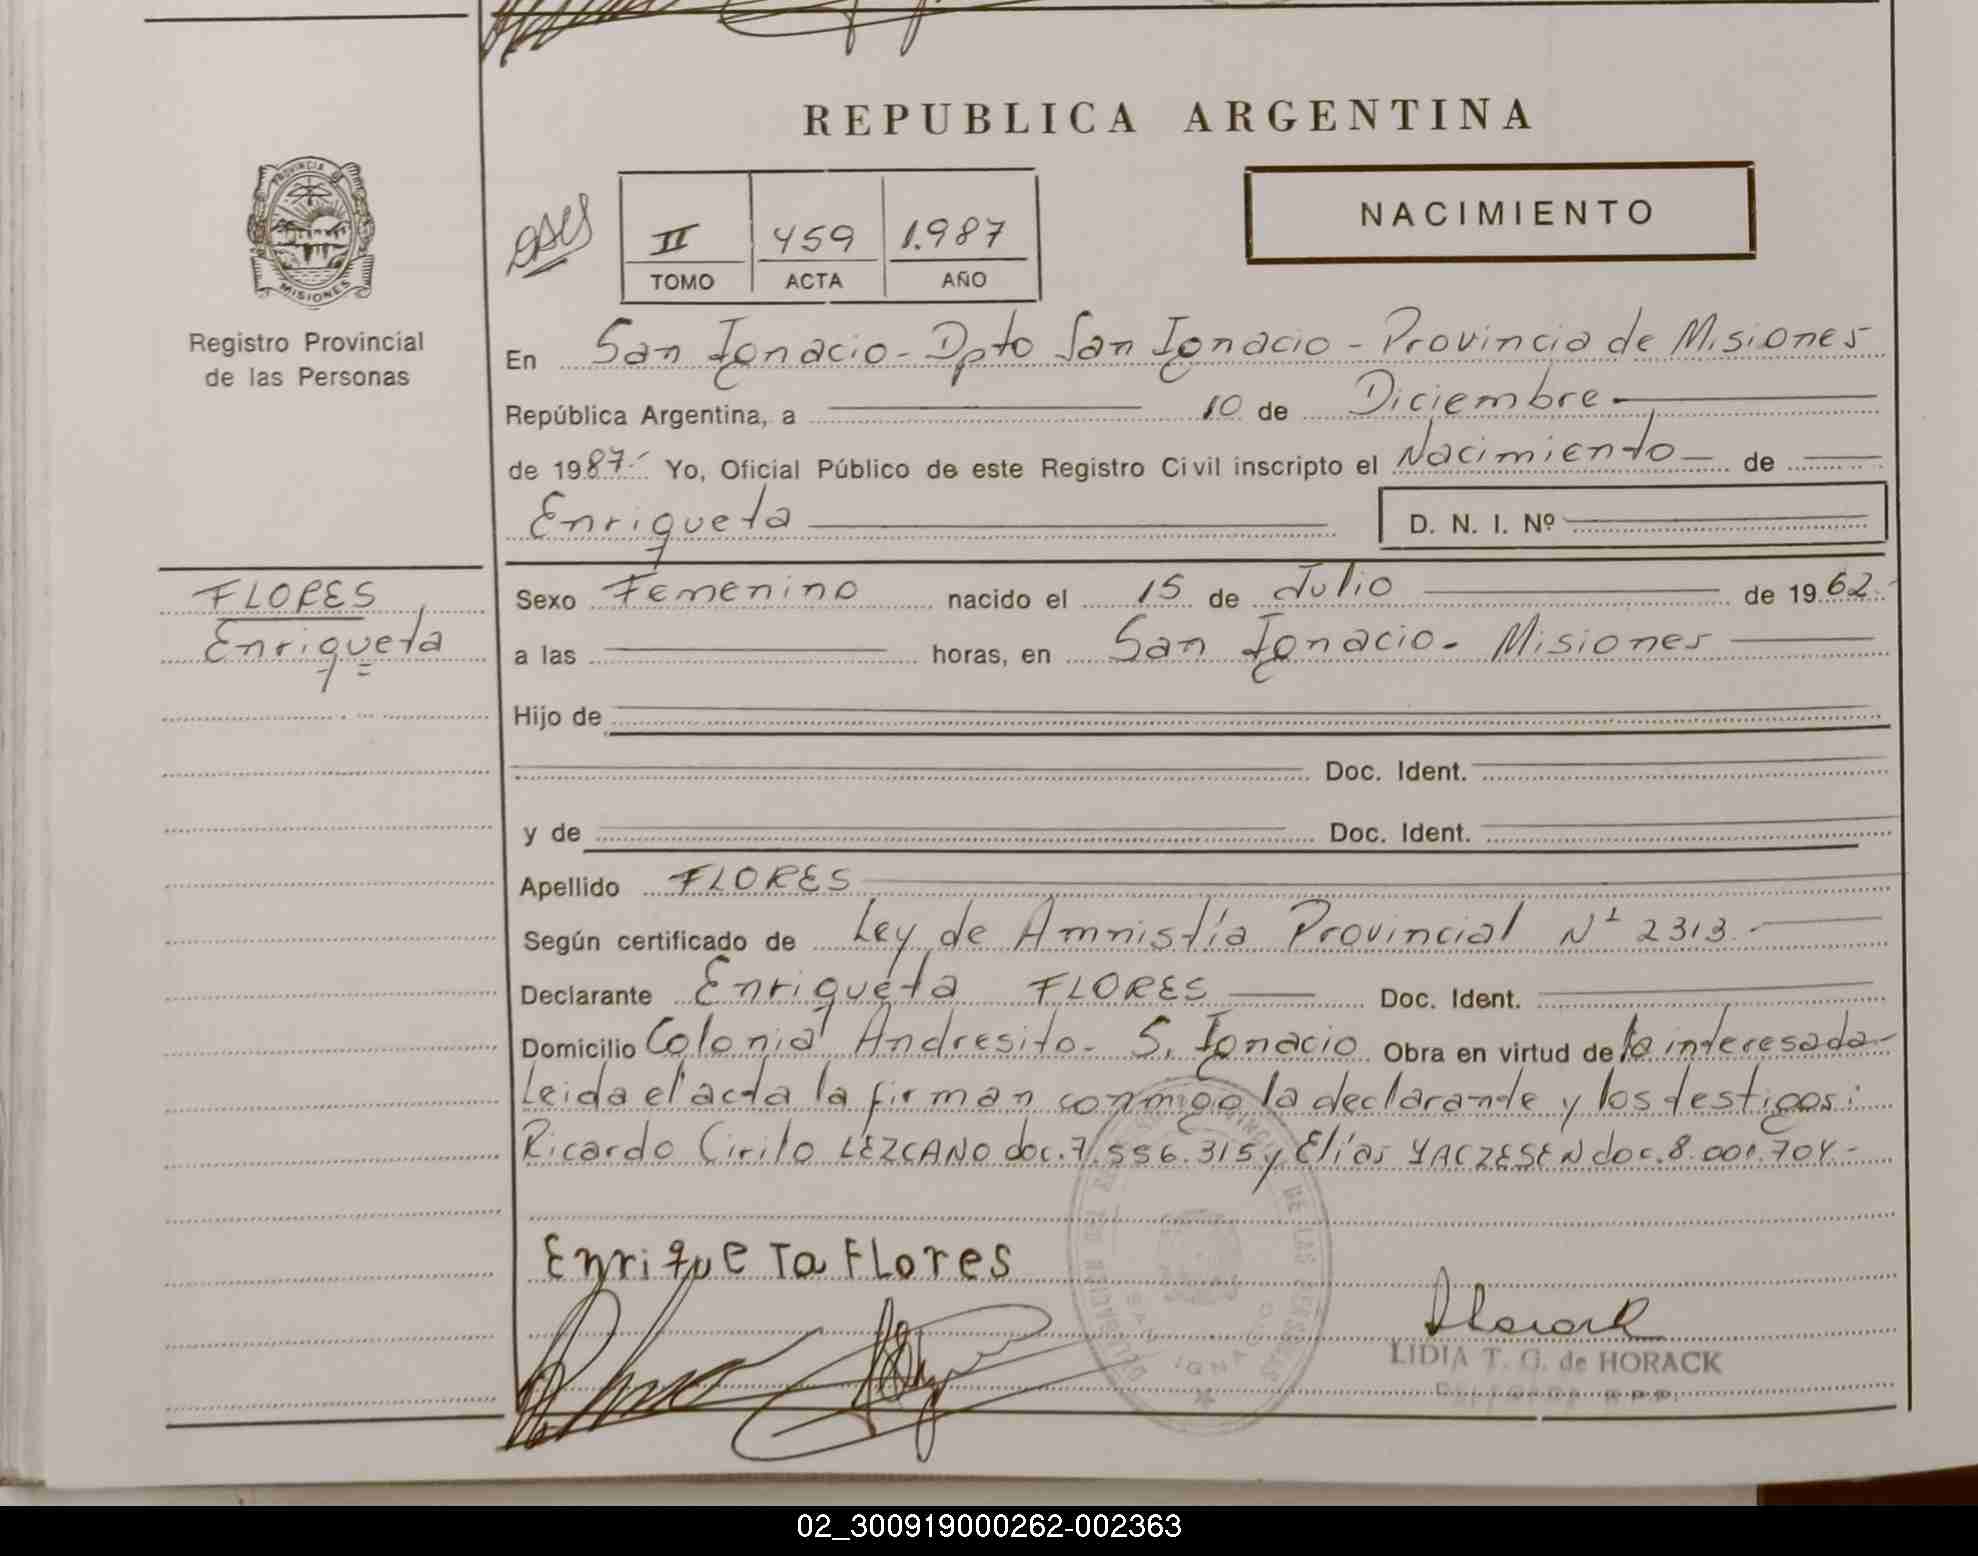 REPUBLICA ARGENTINA
PROVINCIA DE
MISIONES
Registro Provincial
de las Personas
II 459 1.987
TOMO ACTA AÑO
NACIMIENTO
En San Ignacio - Dpto San Ignacio - Provincia de Misiones
República Argentina, a 10 de Diciembre
de 1987.- Yo, Oficial Público de este Registro Civil inscripto el Nacimiento de
Enriqueta D. N. I. Nº
FLORES
Enriqueta
Sexo Femenino nacido el 15 de Julio de 1962.-
a las horas, en San Ignacio - Misiones
Hijo de
Doc. Ident.
y de Doc. Ident.
Apellido FLORES
Según certificado de Ley de Amnistía Provincial Nº 2313.-
Declarante Enriqueta FLORES Doc. Ident.
Domicilio Colonia Andresito - S. Ignacio Obra en virtud de la interesada-
Leida el acta la firman conmigo la declarante y los testigos:
Ricardo Cirilo LEZCANO doc. 7.556.315 y Elías YACZESEN doc. 8.001.704.-
EnriqueTa FLores
SAN IGNACIO
DE LAS PERSONAS
Horack
LIDIA T. G. de HORACK
DELEGADA R.P.P.
02_300919000262-002363